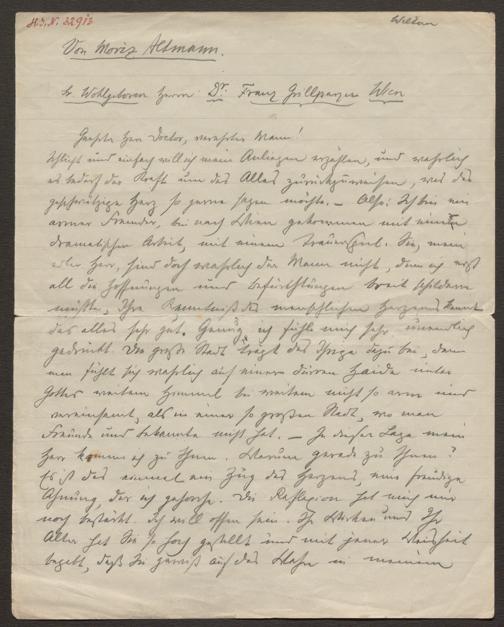 H.I.N. 32913
Von Moriz Altmann.
Sr Wohlgeboren Herrn Dr. Franz Grillparzer Wien
Geehrter Herr Doctor, verehrter Mann!
Schlicht und einfach will ich mein Anliegen erzählen, und wahrlich
es bedarf der Kraft um das Alles zurückzuweisen, was das
geschwätzige Herz so gerne sagen möchte. – Also: Ich bin ein
armer Fremder, bin nach Wien gekommen mit einer
dramatischen Arbeit, mit einem Trauerspiel. Sie, mein
edler Herr, sind doch wahrlich der Mann nicht, dem ich erst
all die Hoffnungen und Befürchtungen breit schildern
müßte, Ihre Kenntniß des menschlichen Herzens kennt
das alles sehr gut. Genug ich fühle mich sehr, unendlich
gedrückt. Die große Stadt trägt das Ihrige dazu bei, denn
man fühlt sich wahrlich auf einer dürren Haide unter
Gottes weitem Himmel bei weitem nicht so arm und
vereinsamt, als in einer so großen Stadt, wo man
Freunde und Bekannte nicht hat. – In dieser Lage mein
Herr komme ich zu Ihnen. Warum gerade zu Ihnen?
Es ist das einmal ein Zug des Herzens, eine freudige
Ahnung der ich gehorche. Die Reflexion hat mich nur
noch bestärkt. Ich will offen sein. Ihr Wirken und Ihr
Alter hat Sie so hoch gestellt und mit jener Weisheit
begabt, daß Sie gewiß auf das Wahre in meinem